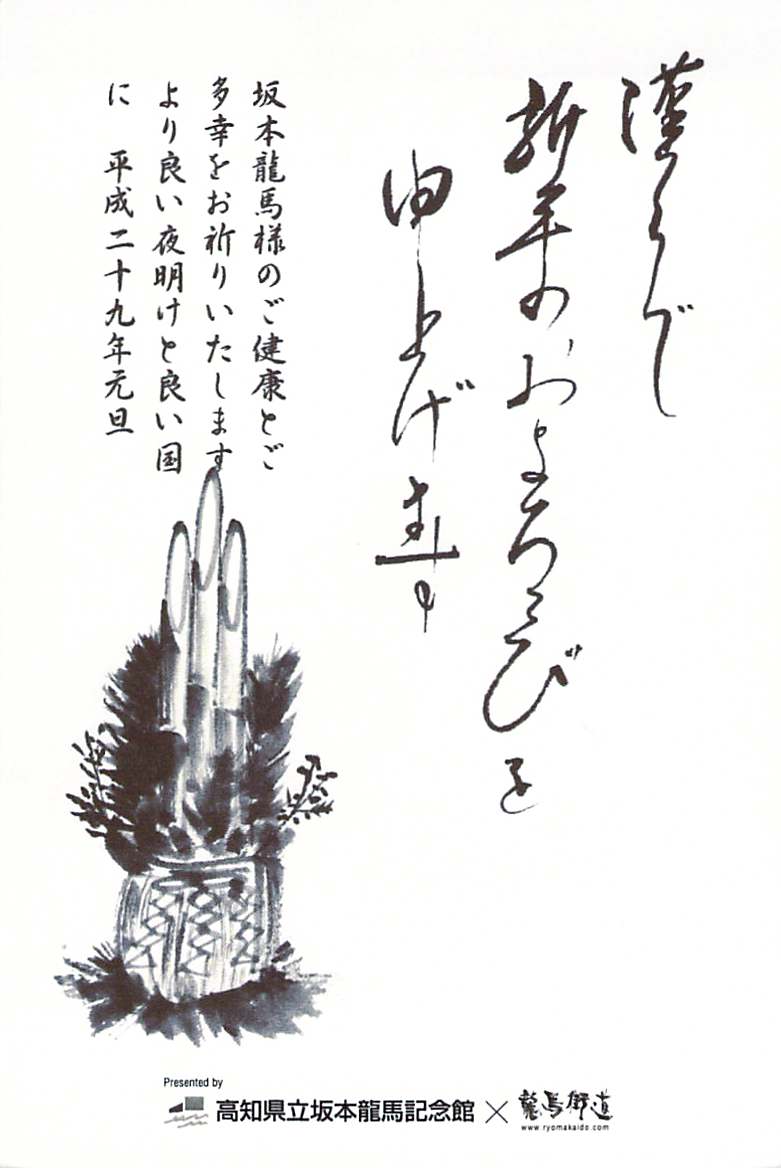 謹んで
新年のおよろこびを
申し上げます
坂本龍馬様のご健康とご
多幸をお祈りいたします
より良い夜明けと良い国
に　平成二十九年元旦
Presented by
高知県立坂本龍馬記念館×龍馬街道
www.ryomakaido.com